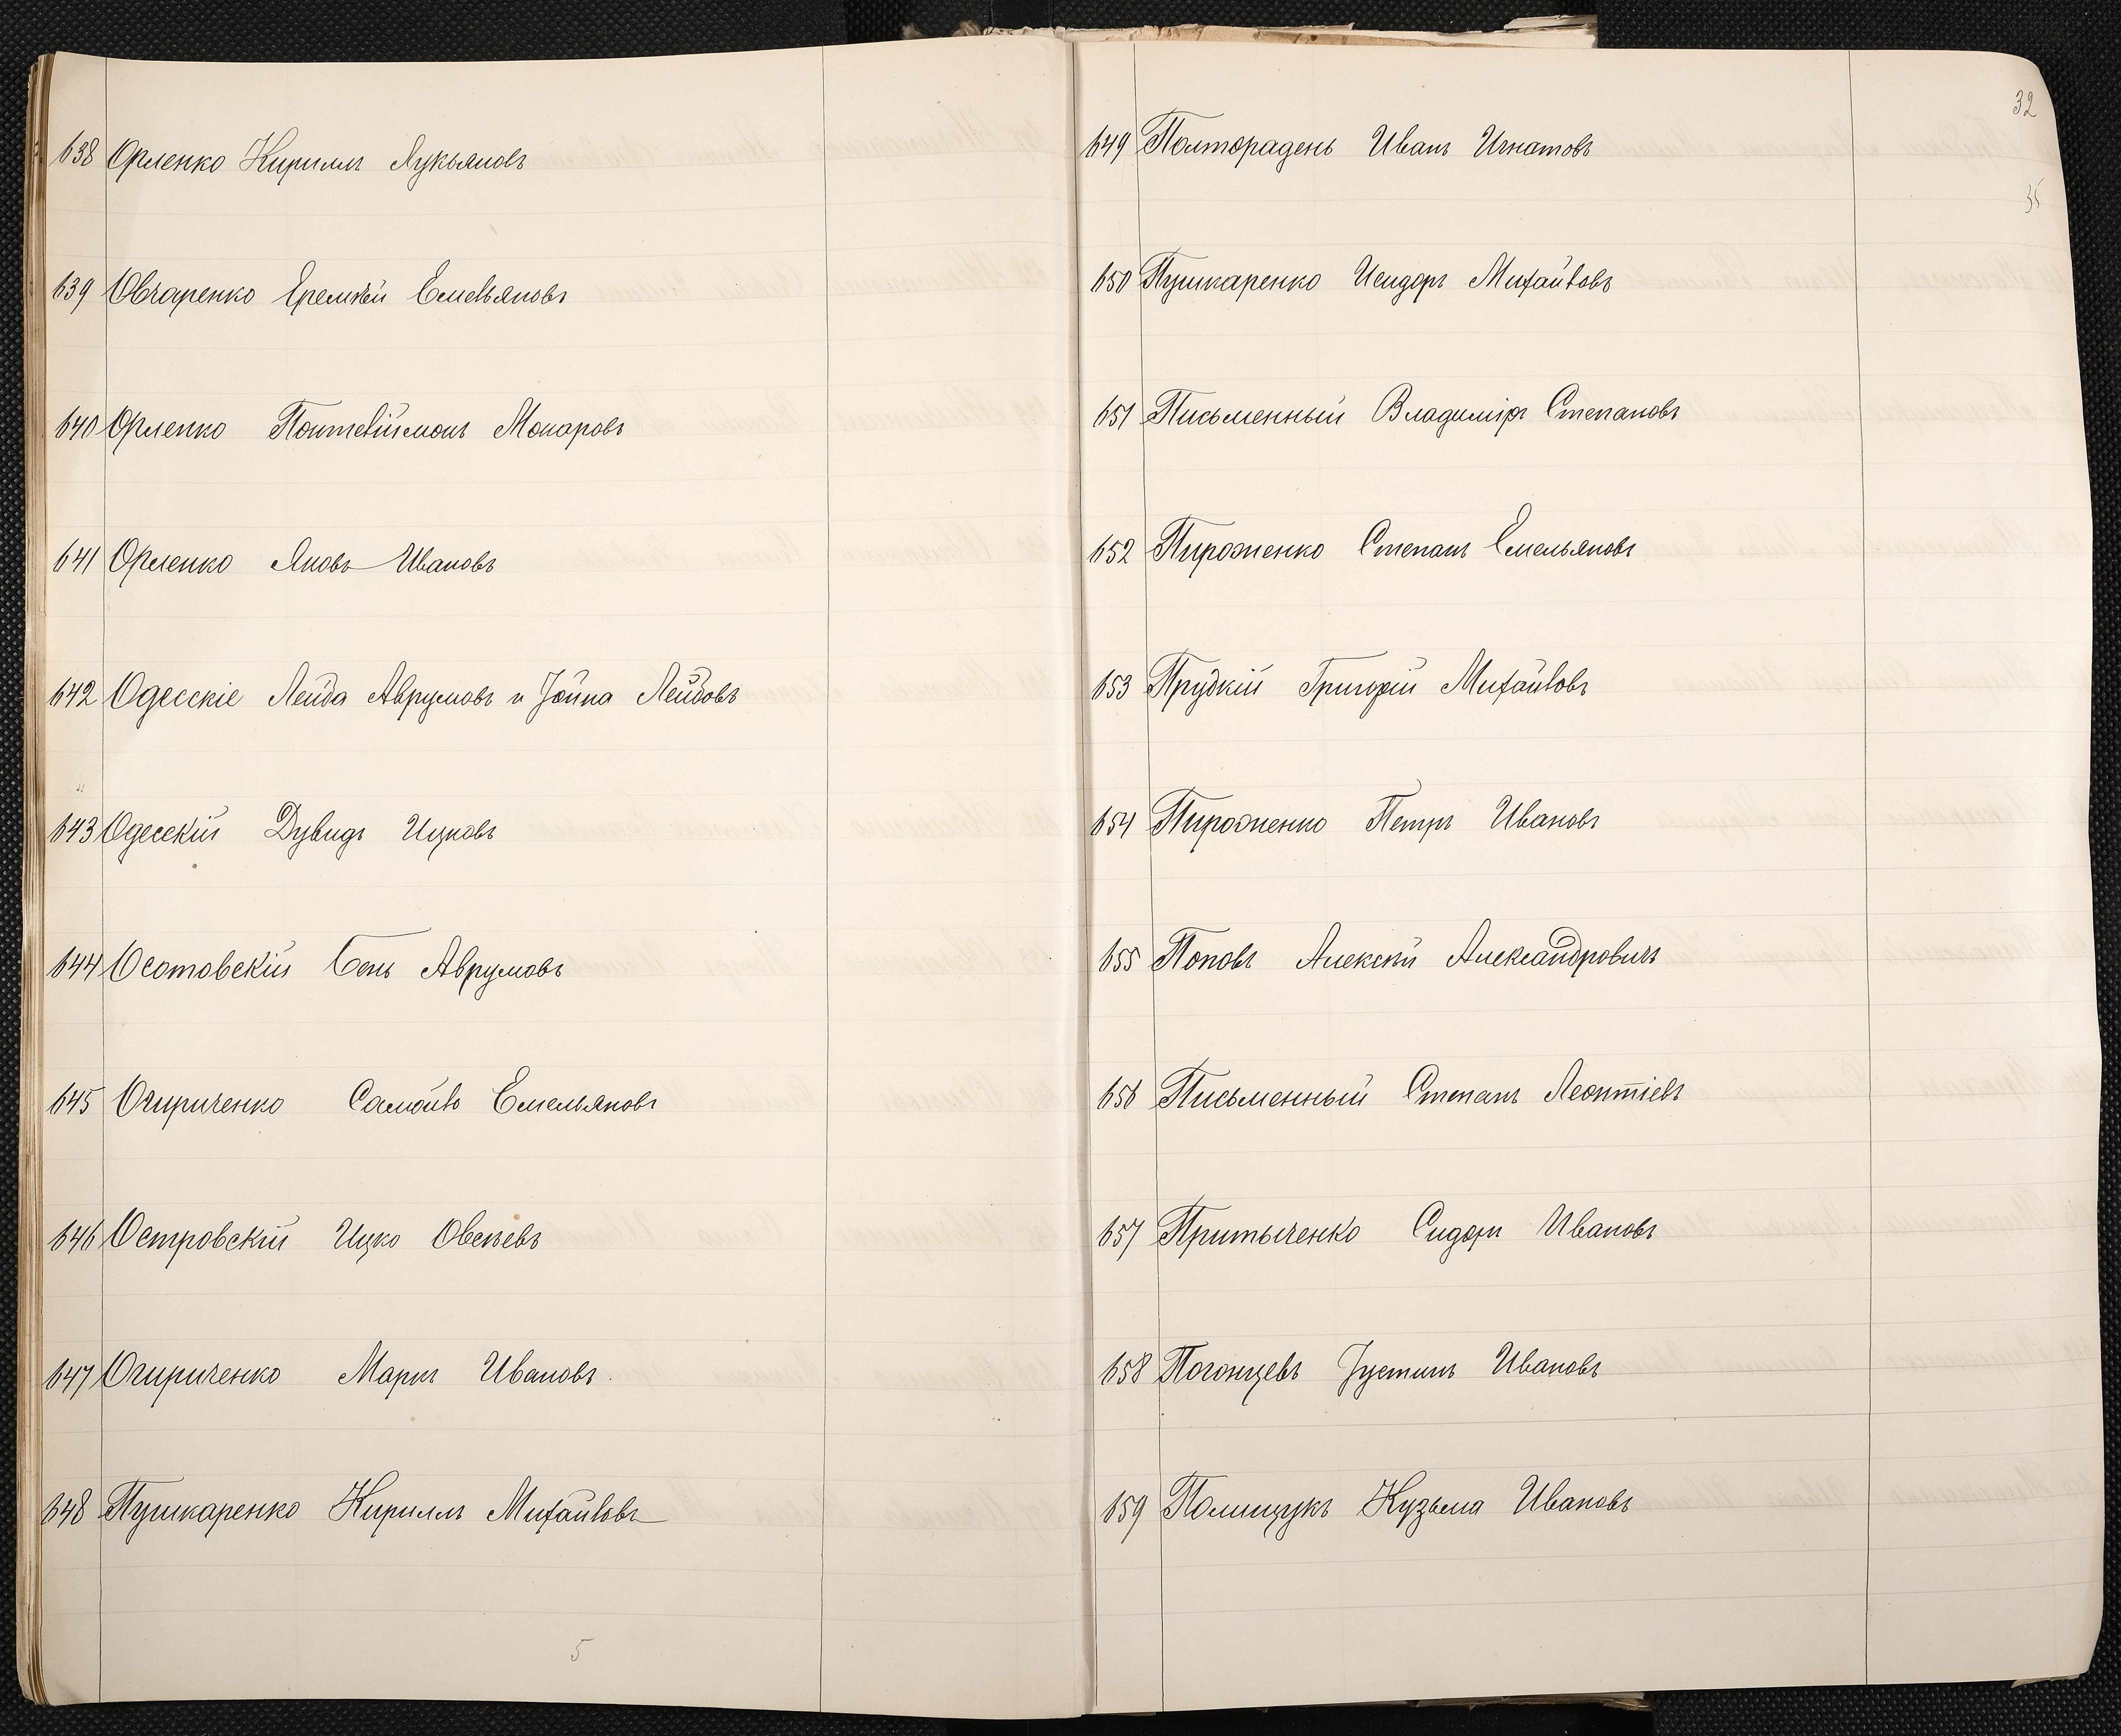 638 Орленко Кириллъ Лукьяновъ
639 Овчаренко Еремѣй Емельяновъ
640 Орленко Понтелѣймонъ Мокаровъ
641 Орленко Яковъ Ивановъ
642 Одесскіе Лейба Аврумовъ и Іойна Лейбовъ
643 Одесскій Дувидъ Ицковъ
644 Осотовскій Бень Аврумовъ
645 Огириченко Самойло Емельяновъ
646 Островскій Ицко Овсѣевъ
647 Огириченко Маркъ Ивановъ
648 Пушкаренко Кириллъ Михайловъ
5
32
35
649 Полторадень Иванъ Игнатовъ
650 Пушкаренко Исидоръ Михайловъ
651 Письменный Владиміръ Степановъ
652 Пироженко Степанъ Емельяновъ
653 Прудкій Григорій Михайловъ
654 Пироженко Петръ Ивановъ
655 Поповъ Алексѣй Александровичъ
656 Письменный Степанъ Леонтіевъ
657 Притыченко Сидоръ Ивановъ
658 Погонцевъ Іустинъ Ивановъ
659 Полищукъ Кузьма Ивановъ